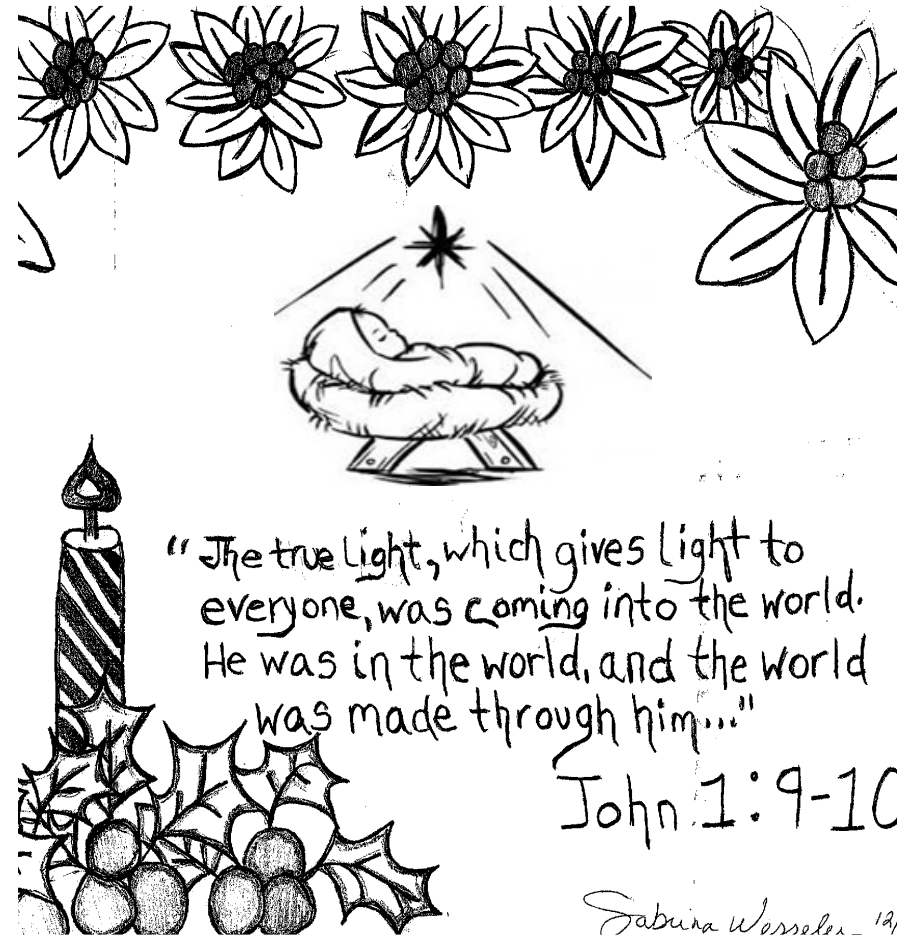 “The true light, which gives light to
everyone, was coming into the world.
He was in the world, and the world
was made through him..."
John 1:9-10
Sabrina